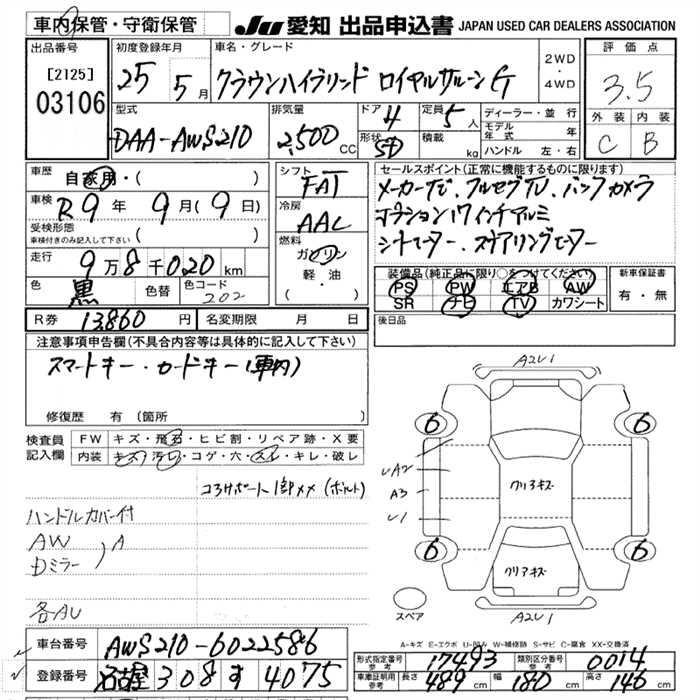 車内保管・守衛保管 JU 愛知 出品申込書 JAPAN USED CAR DEALERS ASSOCIATION
出品番号 [2125] 03106
初度登録年月 25 5月
車名・グレード クラウンハイブリッド ロイヤルサルーンG
2WD・4WD
評価点 3.5
外装 C 内装 B
型式 DAA-AWS210
排気量 2,500 CC
ドア 4 形状 SD
定員 5人 積載 kg
ディーラー・並行
モデル年式 年
ハンドル 左・右
車歴 自家用・( )
車検 R9年 9月(9日)
受検形態 車検付きのみ記入して下さい ( )
走行 9万8千020km
色 黒 色替 色コード 202
R券 13,860円 名変期限 月 日
シフト FAT
冷房 AAC
燃料 ガソリン 軽・油 ( )
セールスポイント(正常に機能するものに限ります)
メーカーナビ、フルセグTV、バックカメラ
オプション17インチアルミ
シートヒーター、ステアリングヒーター
装備品(純正品に限り○をつけてください) 新車保証書
PS PW エアB AW 有・無
SR ナビ TV カワシート
後日品
注意事項申告欄(不具合内容等は具体的に記入して下さい)
スマートキー・カードキー(車内)
修復歴 有(箇所 )
検査員記入欄 FW キズ・飛石・ヒビ割・リペア跡・X要
内装 キズ・汚レ・コゲ・穴・スレ・キレ・破レ
コアサポート 1部XX(ボルト)
ハンドルカバー付
AW A
Dミラー
各AU
A2U1
6 6
UA2
A3
U1
クリアキズ
クリアキズ
6 6
スペア
A2U1
A-キズ E-エクボ U-凹み W-補修跡 S-サビ C-腐食 XX-交換済
車台番号 AWS210-6022586
登録番号 名古屋 308 す 4075
形式指定番号 参考 17493 類別区分番号 参考 0014
車庫証明用 参考 長さ 489cm 幅 180cm 高さ 146cm